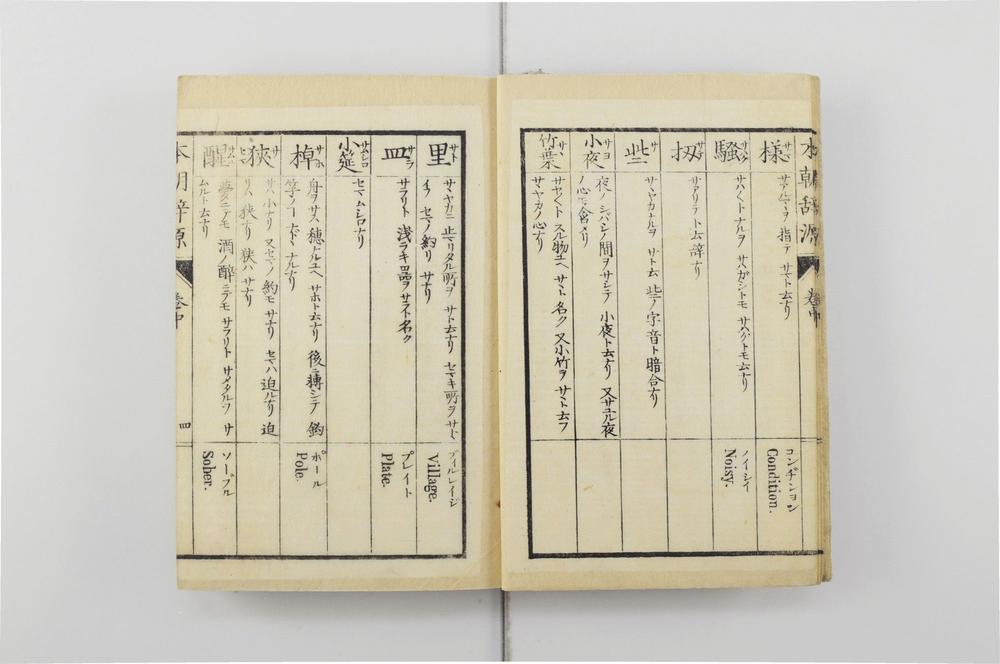 本朝辞源 卷中
様 サマ
サアルサマヲ 指テ サマト云ナリ
コンヂション
Condition.
騒 サワグ
サハ〳〵ト ナルヲ サハガシトモ サハグトモ云ナリ
ノイシイ
Noisy.
扨 サテ
サアリテ ト云 辞ナリ
些 サ
サヽヤカナルヲ サト云 些ノ字音ト暗合ナリ
小夜 サヨ
夜ノ シバシノ 間ヲ サシテ 小夜ト云ナリ 又サユル夜
ノ心モ含メリ
竹葉 サヽ
サヤ〳〵ト スル物ユヘ サヽト 名ク 又小竹ヲ サヽト云フ
サヽヤカノ 心ナリ
里 サト
サヽヤカニ 止マリタル所ヲ サト云ナリ セマキ所ヲ サト
イフ セマノ約リ サナリ
ブイルレイジ
Village.
皿 サラ
サラリト 浅ラキ器ヲ サラト名ク
プレイト
Plate.
小筵 サムシロ
セマムシロナリ
棹 サホ
舟ヲサス 穂ナルユヘ サホト云ナリ 後ニ轉シテ 釣
竿ノ コトヽナルナリ
ポール
Pole.
狭 サ
サハ 小ナリ 又セマノ 約モ サナリ セマハ 迫ルナリ 迫
リハ 狭ナリ 狭ハ サナリ
醒 サム
夢ニテモ 酒ノ酔ニテモ サラリト サメタルヲ サ
ムルト云ナリ
ソーブル
Sober.
本朝辞源 卷中 四